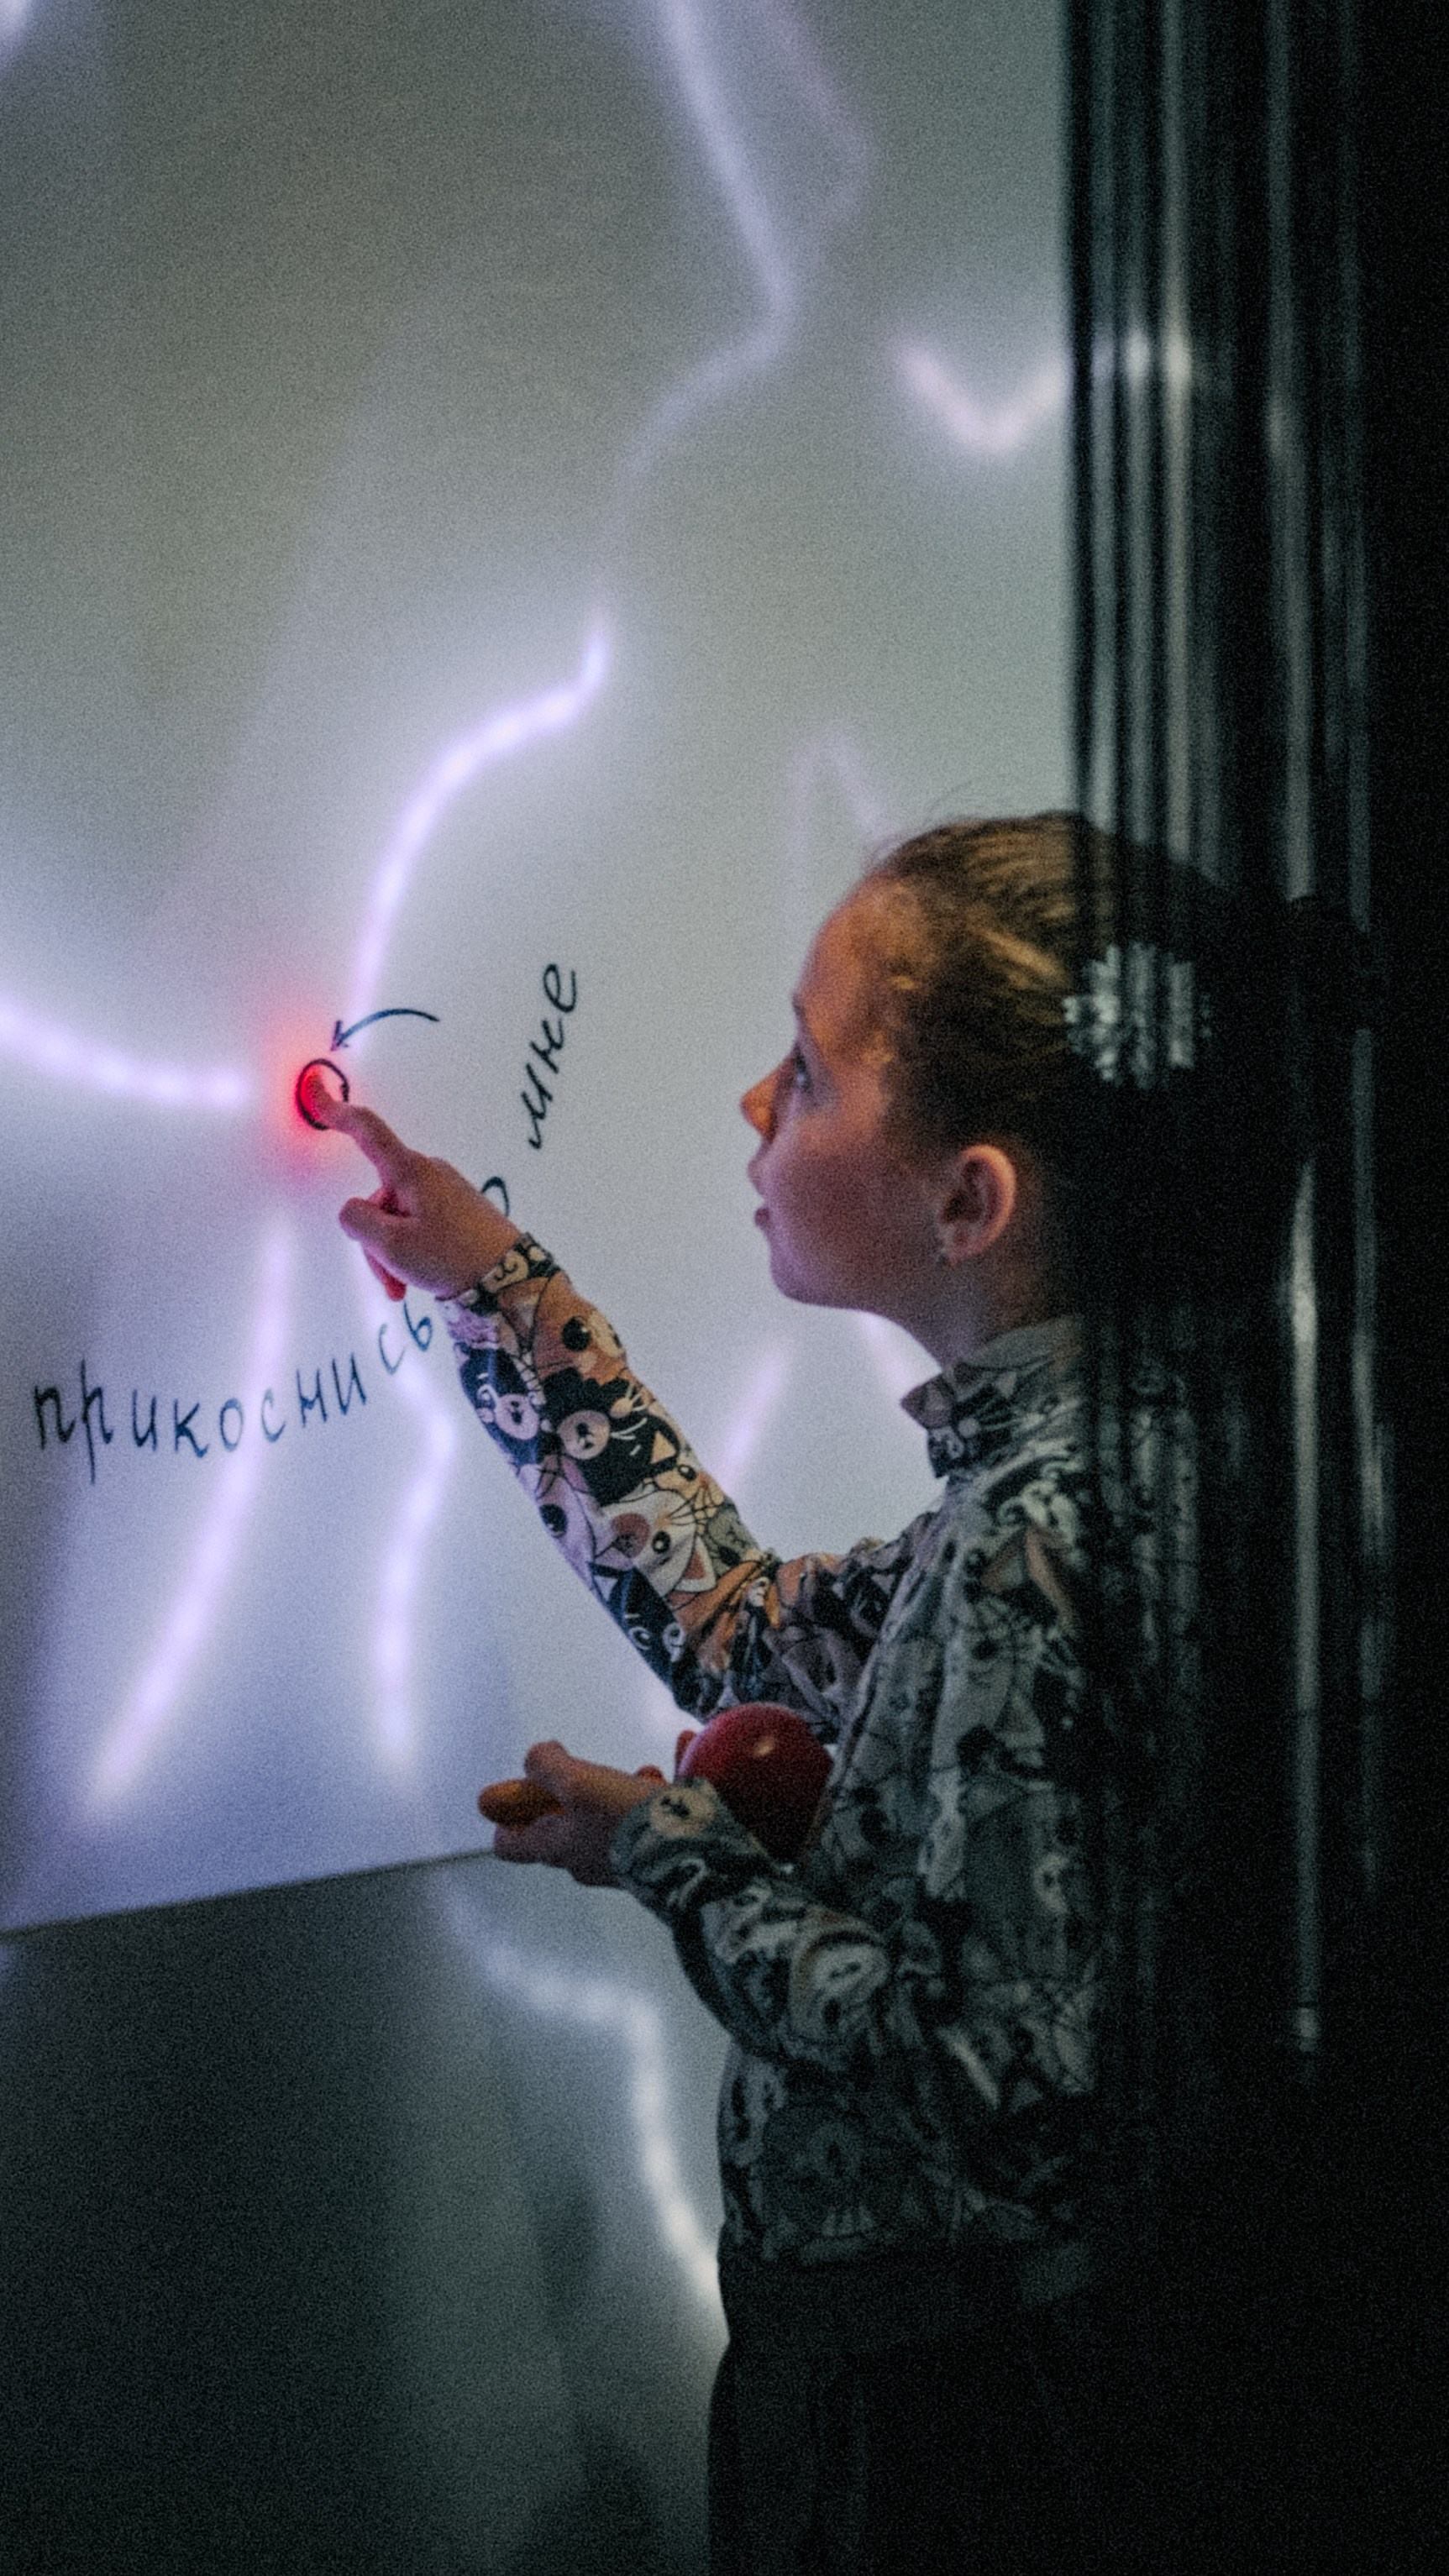 прикоснись мне